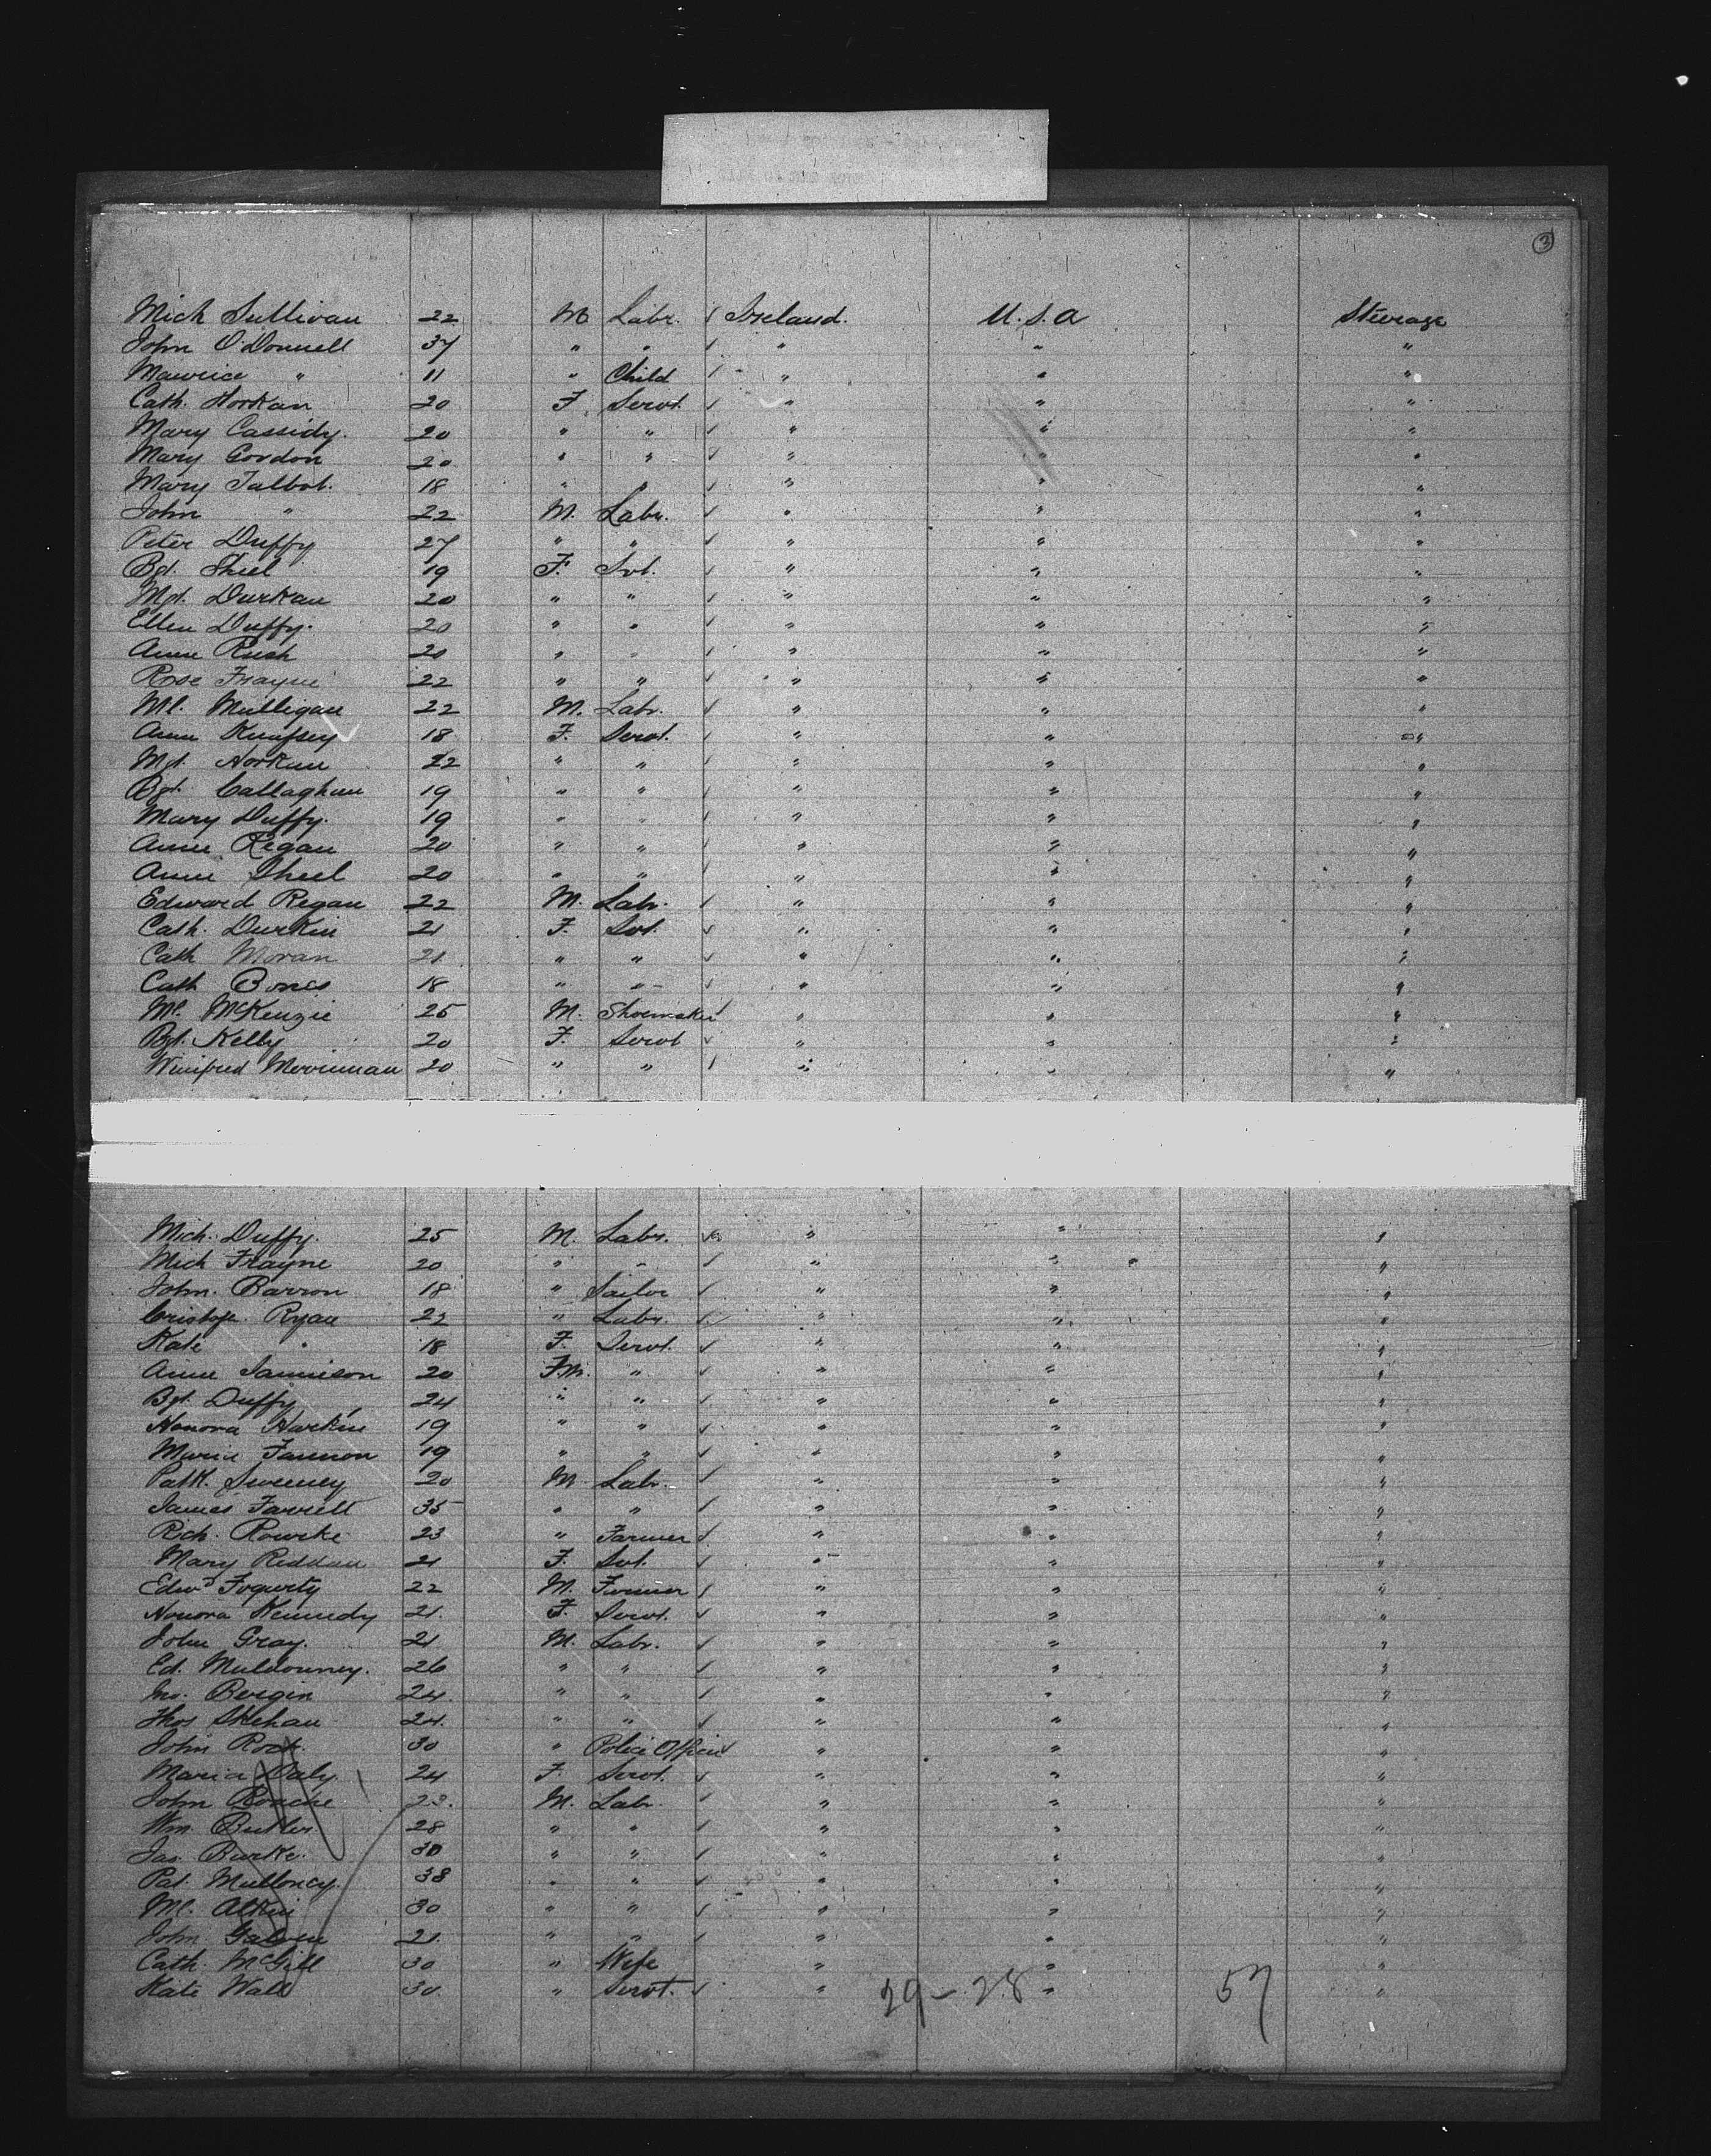 3
Mich Sullivan 22 M Labr. Ireland. U.S.A Steerage
John O'Donnell 37 " " " " "
Maurice " 11 " Child " " "
Cath. Horkan 20 F Servt. " " "
Mary Cassidy. 20 " " " " "
Mary Gordon 20 " " " " "
Mary Talbot. 18 " " " " "
John " 22 M. Labr. " " "
Peter Duffy 27 " " " " "
Bgt. Sheil 19 F. Svt. " " "
Mgt. Durkan 20 " " " " "
Ellen Duffy. 20 " " " " "
Anne Rush 20 " " " " "
Rose Frayne 22 " " " " "
Ml. Mulligan 22 M. Labr. " " "
Anne Kumfsey 18 F. Servt. " " "
Mgt. Horkan 22 " " " " "
Bgt. Callaghan 19 " " " " "
Mary Duffy. 19 " " " " "
Anne Regan 20 " " " " "
Anne Sheil 20 " " " " "
Edward Regan 22 M. Labr. " " "
Cath. Durkin 21 F. Svt. " " "
Cath Moran 21 " " " " "
Cath Bones 18 " " " " "
Ml. McKenzie 25 M. Shoemaker " " "
Bgt. Kelly 20 F. Servt " " "
Winifred Merriman 20 " " " " "
Mich. Duffy. 25 M. Labr. " " "
Mich Frayne 20 " " " " "
John. Barron 18 " Sailor " " "
Cristofr. Ryan 22 " Labr. " " "
Kate " 18 F. Servt. " " "
Anne Jamieson 20 Fm. " " " "
Bgt. Duffy 24 " " " " "
Honora Harkin 19 " " " " "
Maria Fannon 19 " " " " "
Patk. Sweeney 20 M. Labr. " " "
James Farrell 35 " " " " "
Rich. Rourke 23 " Farmer " " "
Mary Reddan 21 F. Svt. " " "
Edwd Fogarty 22 M. Farmer " " "
Honora Kennedy 21. F. Servt. " " "
John Gray. 21 M. Labr. " " "
Ed. Muldowney. 26 " " " " "
Jno. Bergin 24. " " " " "
Thos Skehan 24. " " " " "
John Rock. 30 " Police Officer " " "
Maria Daly. 24 F. Servt. " " "
John Roache 23. M. Labr. " " "
Wm. Butler. 28 " " " " "
Jas. Burke. 30 " " " " "
Pat. Mulloney. 38 " " " " "
Ml. Atkin 30 " " " " "
John Galven 21. " " " " "
Cath. McGill 30 " Wife " " "
Kate Wall 30 " Servt. " " "
29 - 28 57